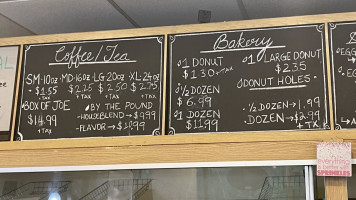 Coffee/Tea
SM-10oz MD-16oz-LG 20oz XL-24oz
$1.55 $2.25 $2.50 $2.75
+TAX +TAX +TAX
BOX OF JOE
$14.99
+TAX
BY THE POUND
HOUSE BLEND → $9.99
FLAVOR →
Bakery
1 DONUT
$1.30 +TAX
½ DOZEN
$6.99
1 DOZEN
$11.99
1 LARGE DONUT
$2.35
DONUT HOLES
½ DOZEN → 1.99
DOZEN → $2.99
+TAX
SPRINKLES